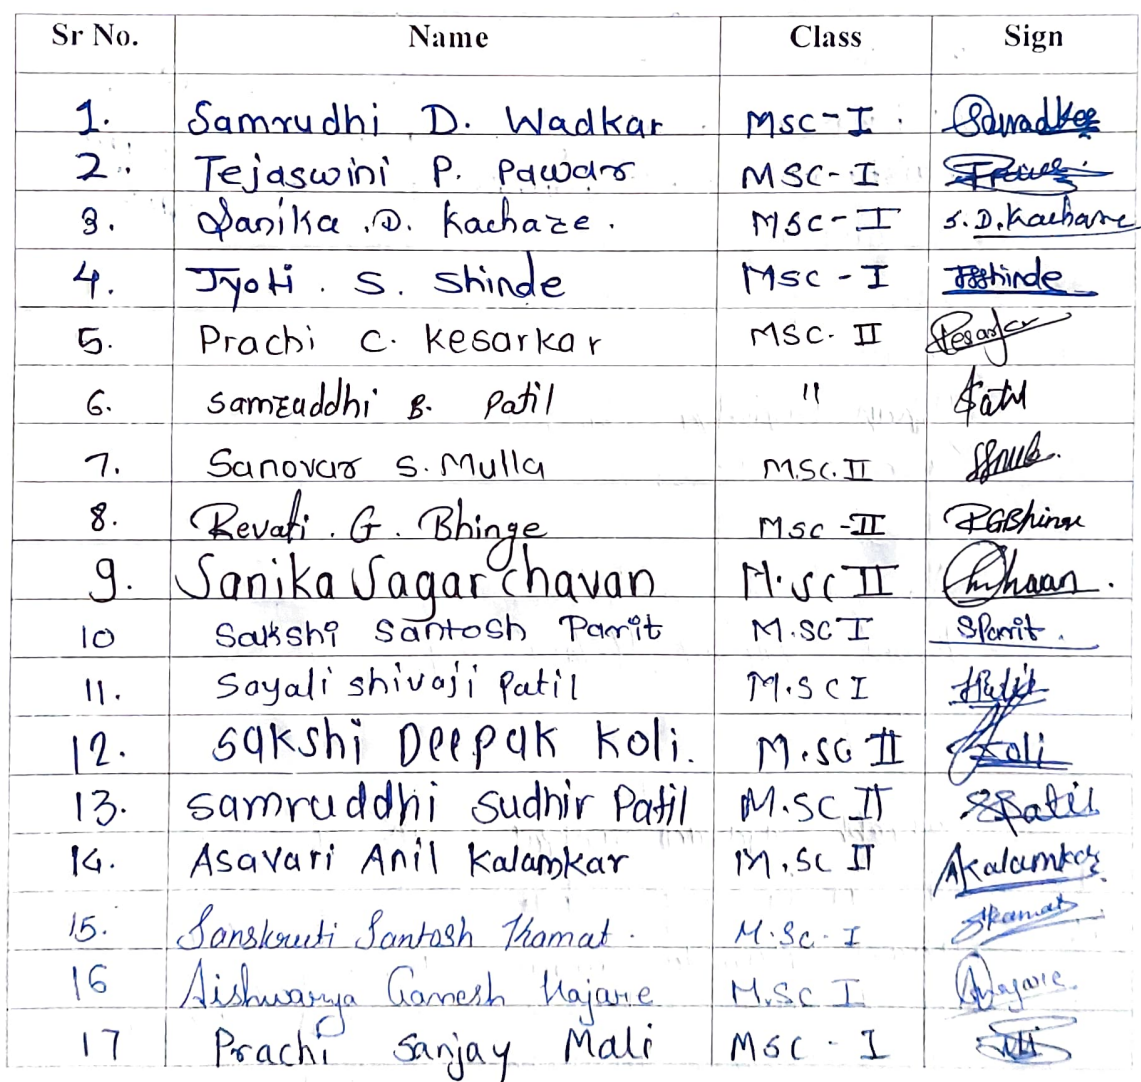 Sr No. Name Class Sign
1. Samrudhi D. Wadkar MSC-I
2. Tejaswini P. Pawar MSC-I
3. Sanika .D. Kachare. MSC-I S.D.Kachare
4. Jyoti . S. Shinde MSC-I JSShinde
5. Prachi C. Kesarkar MSC-II
6. Samruddhi B. Patil 11 Patil
7. Sanovar S. Mulla M.SC.II
8. Revati . G. Bhinge MSC-II RGBhinge
9. Sanika Sagar Chavan M.SC II
10 Sakshi Santosh Parit M.SC I SParit.
11. Sayali Shivaji Patil M.SC I
12. Sakshi Deepak Koli. M.SC II Koli
13. Samruddhi Sudhir Patil M.SC II SPatil
14. Asavari Anil Kalamkar M.SC II AKalamkar
15. Sanskruti Santosh Kamat. M.SC. I SKamat
16 Aishwarya Ganesh Hajare M.SC I
17 Prachi Sanjay Mali MSC-I